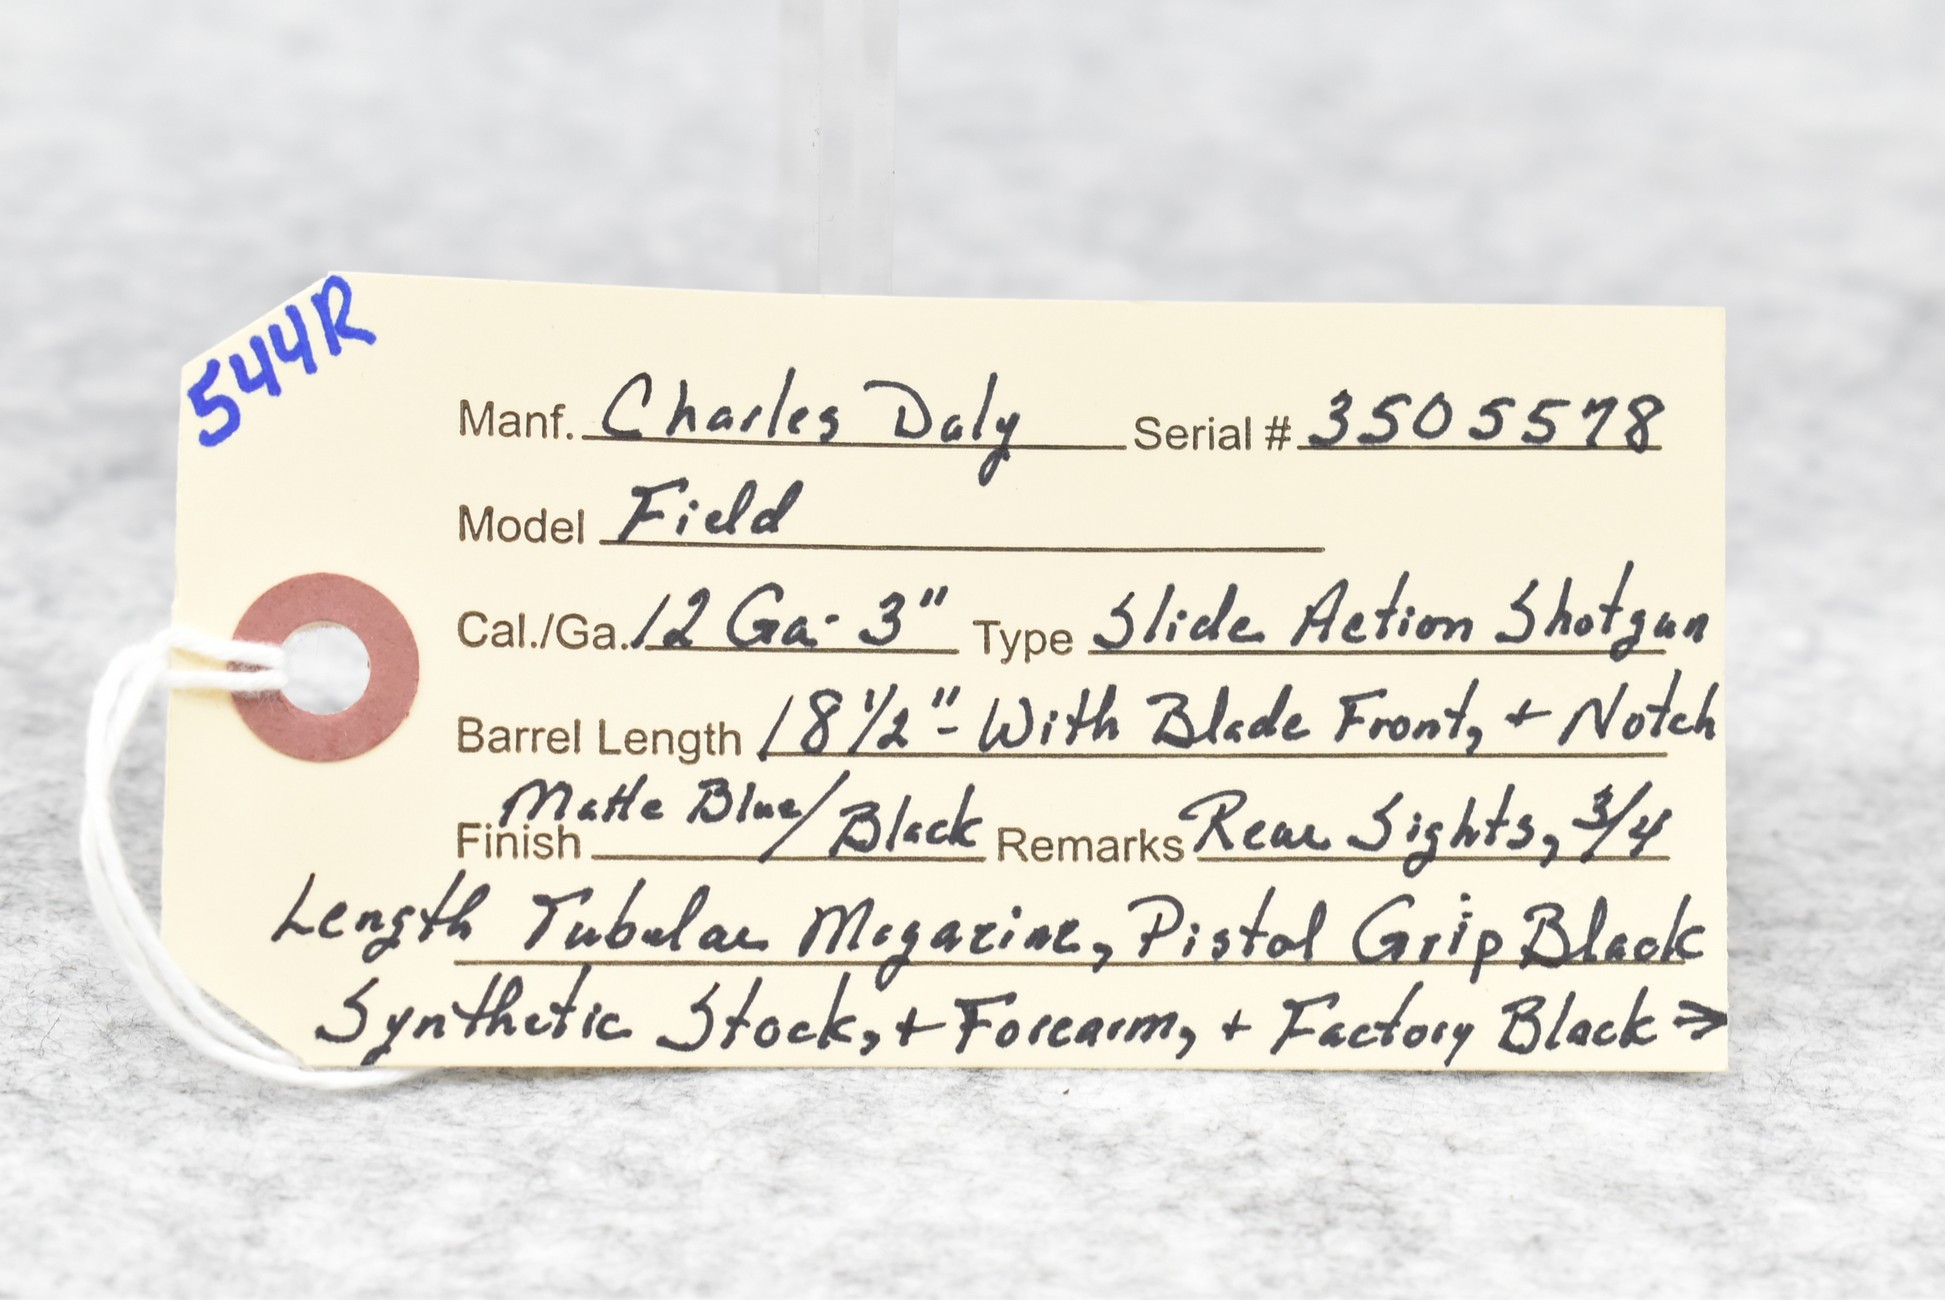 544R
Manf. Charles Daly Serial # 3505578
Model Field
Cal./Ga. 12 Ga- 3" Type Slide Action Shotgun
Barrel Length 18 1/2" - With Blade Front, + Notch
Finish Matte Blue/Black Remarks Rear Sights, 3/4
Length Tubular Magazine, Pistol Grip Black
Synthetic Stock, + Forearm, + Factory Black →